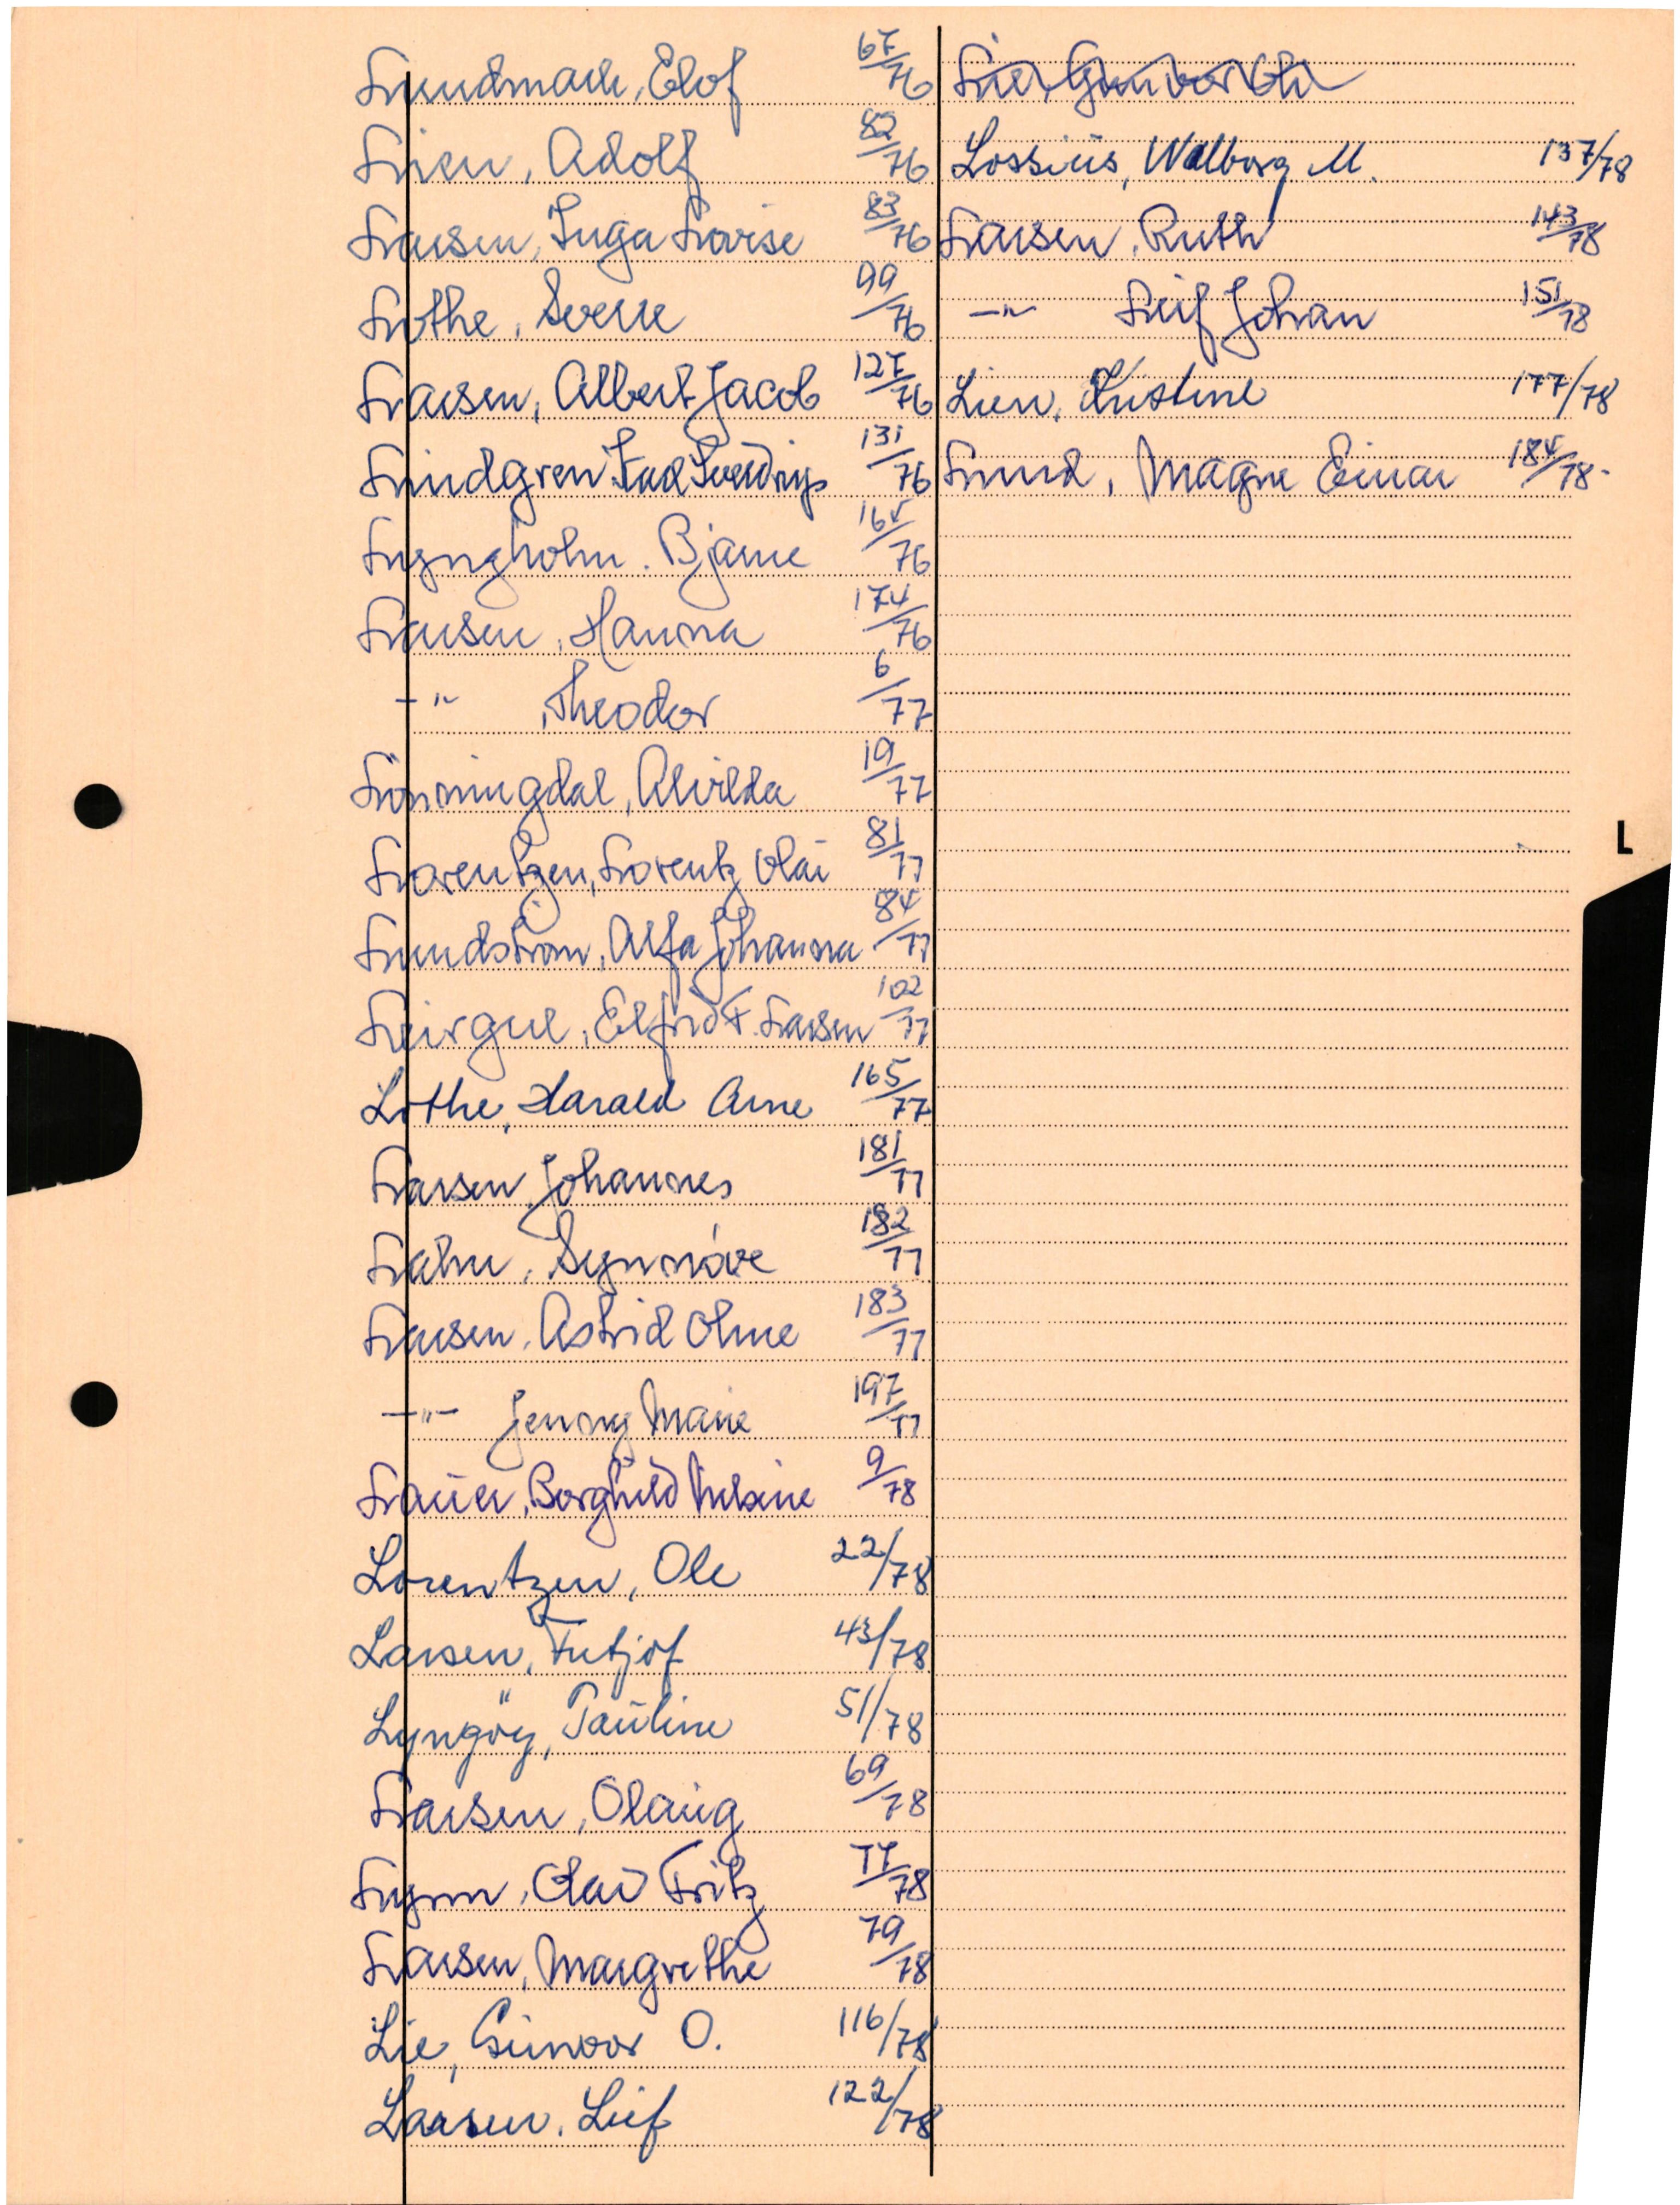 Lundmark, Elof 67/76
Lien, Adolf 82/76
Larsen, Inga Lovise 83/76
Lothe, Sverre 99/76
Larsen, Albert Jacob 127/76
Lindgren 131/76
Lyngholm. Bjarne 165/76
Larsen, Hanna 174/76
-"- , Theodor 6/77
Lönningdal, Alvilda 19/77
Lorentzen, Lorentz Olai 81/77
Lundstrøm, Alfa Johanna 84/77
Leirgul, Elfrid F. Larsen 102/77
Lothe, Harald Arne 165/77
Larsen, Johannes 181/77
Lahn, Synnöve 182/77
Larsen, Astrid Oline 183/77
-"- Jenny Marie 197/77
Lauer, Borghild 9/78
Lorentzen, Ole 22/78
Larsen, Fritjof 43/78
Lyngöy, Pauline 51/78
Larsen, Olaug 69/78
Lynn, Olav Fritz 77/78
Larsen, Margrethe 79/78
Lie, Gunvor O. 116/78
Larsen, Leif 122/78
Lie, Gunvor
Lossius, Walborg M. 137/78
Larsen, Ruth 143/78
-"- Leif Johan 151/78
Lien, Kristine 177/78
Lund, Magne Einar 184/78-
L